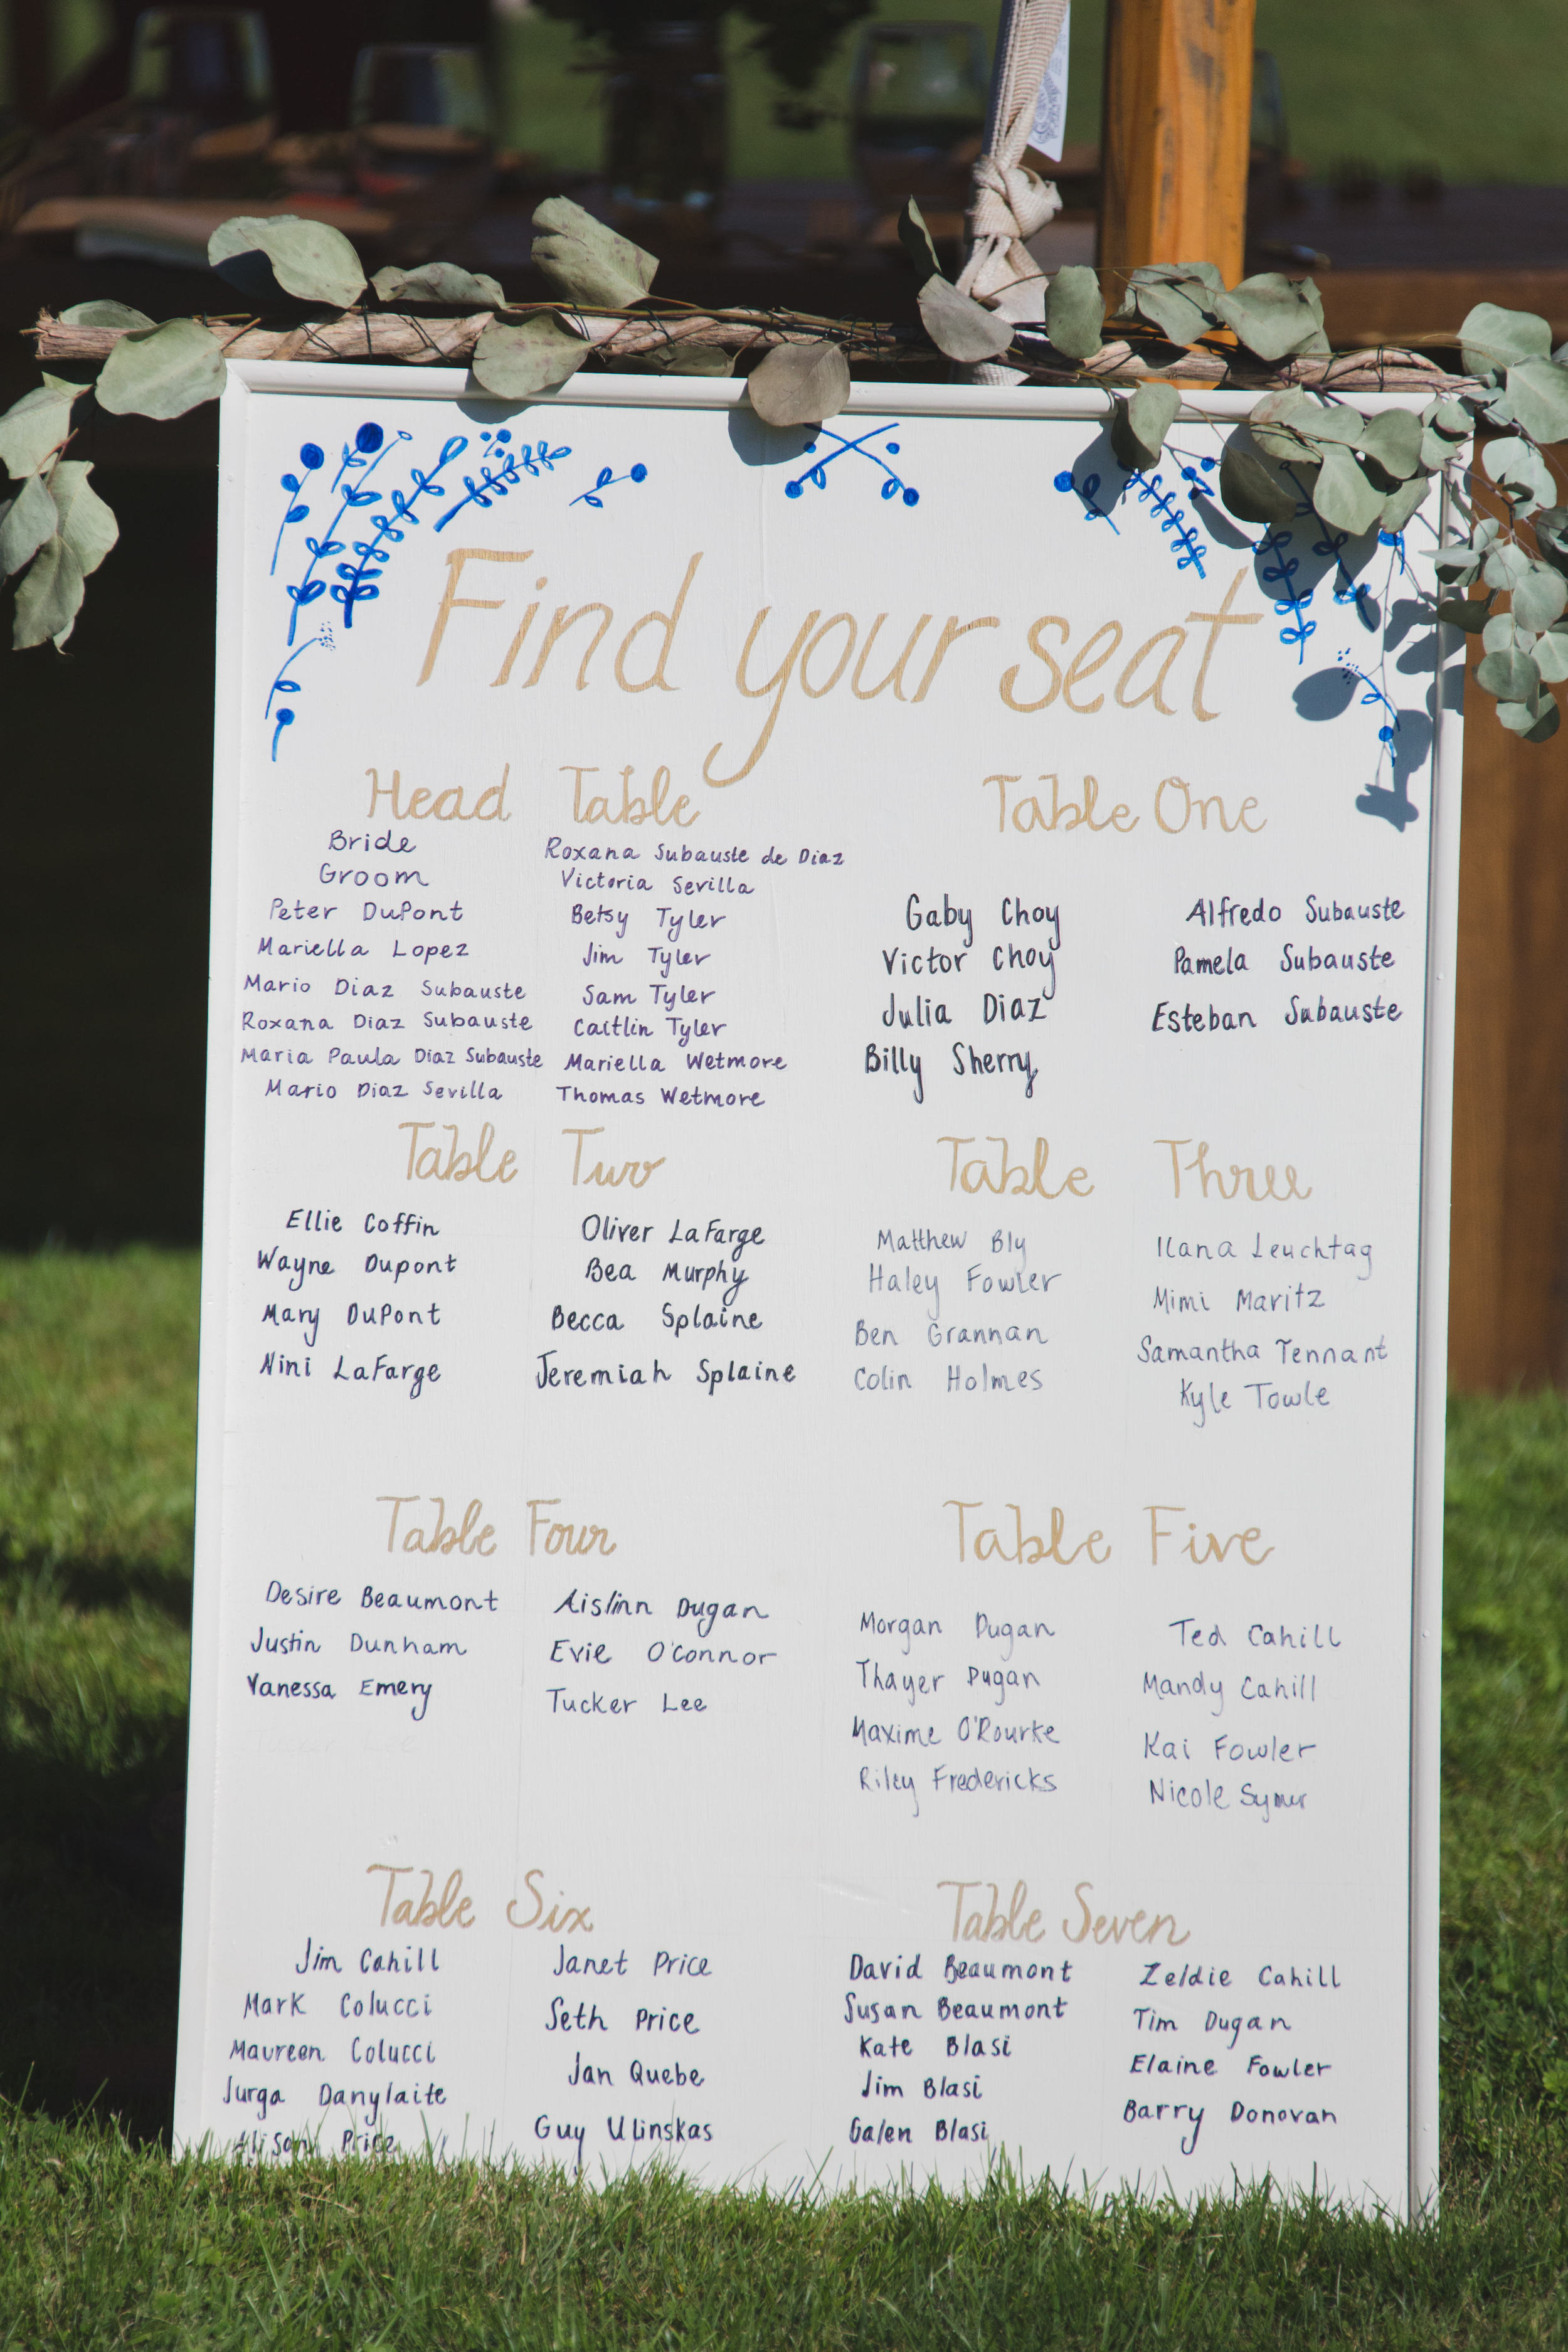 Find your seat
Head Table
Bride
Groom
Peter DuPont
Mariella Lopez
Mario Diaz Subauste
Roxana Diaz Subauste
Maria Paula Diaz Subauste
Mario Diaz Sevilla
Roxana Subauste de Diaz
Victoria Sevilla
Betsy Tyler
Jim Tyler
Sam Tyler
Caitlin Tyler
Mariella Wetmore
Thomas Wetmore
Table One
Gaby Choy
Victor Choy
Julia Diaz
Billy Sherry
Alfredo Subauste
Pamela Subauste
Esteban Subauste
Table Two
Ellie Coffin
Wayne Dupont
Mary DuPont
Nini LaFarge
Oliver LaFarge
Bea Murphy
Becca Splaine
Jeremiah Splaine
Table Three
Matthew Bly
Haley Fowler
Ben Grannan
Colin Holmes
Ilana Leuchtag
Mimi Maritz
Samantha Tennant
Kyle Towle
Table Four
Desire Beaumont
Justin Dunham
Vanessa Emery
Aislinn Dugan
Evie O'Connor
Tucker Lee
Table Five
Morgan Dugan
Thayer Dugan
Maxime O'Rourke
Riley Fredericks
Ted Cahill
Mandy Cahill
Kai Fowler
Nicole
Table Six
Jim Cahill
Mark Colucci
Maureen Colucci
Jurga Danylaite
Alison Price
Janet Price
Seth Price
Jan Quebe
Guy Ulinskas
Table Seven
David Beaumont
Susan Beaumont
Kate Blasi
Jim Blasi
Galen Blasi
Zeldie Cahill
Tim Dugan
Elaine Fowler
Barry Donovan